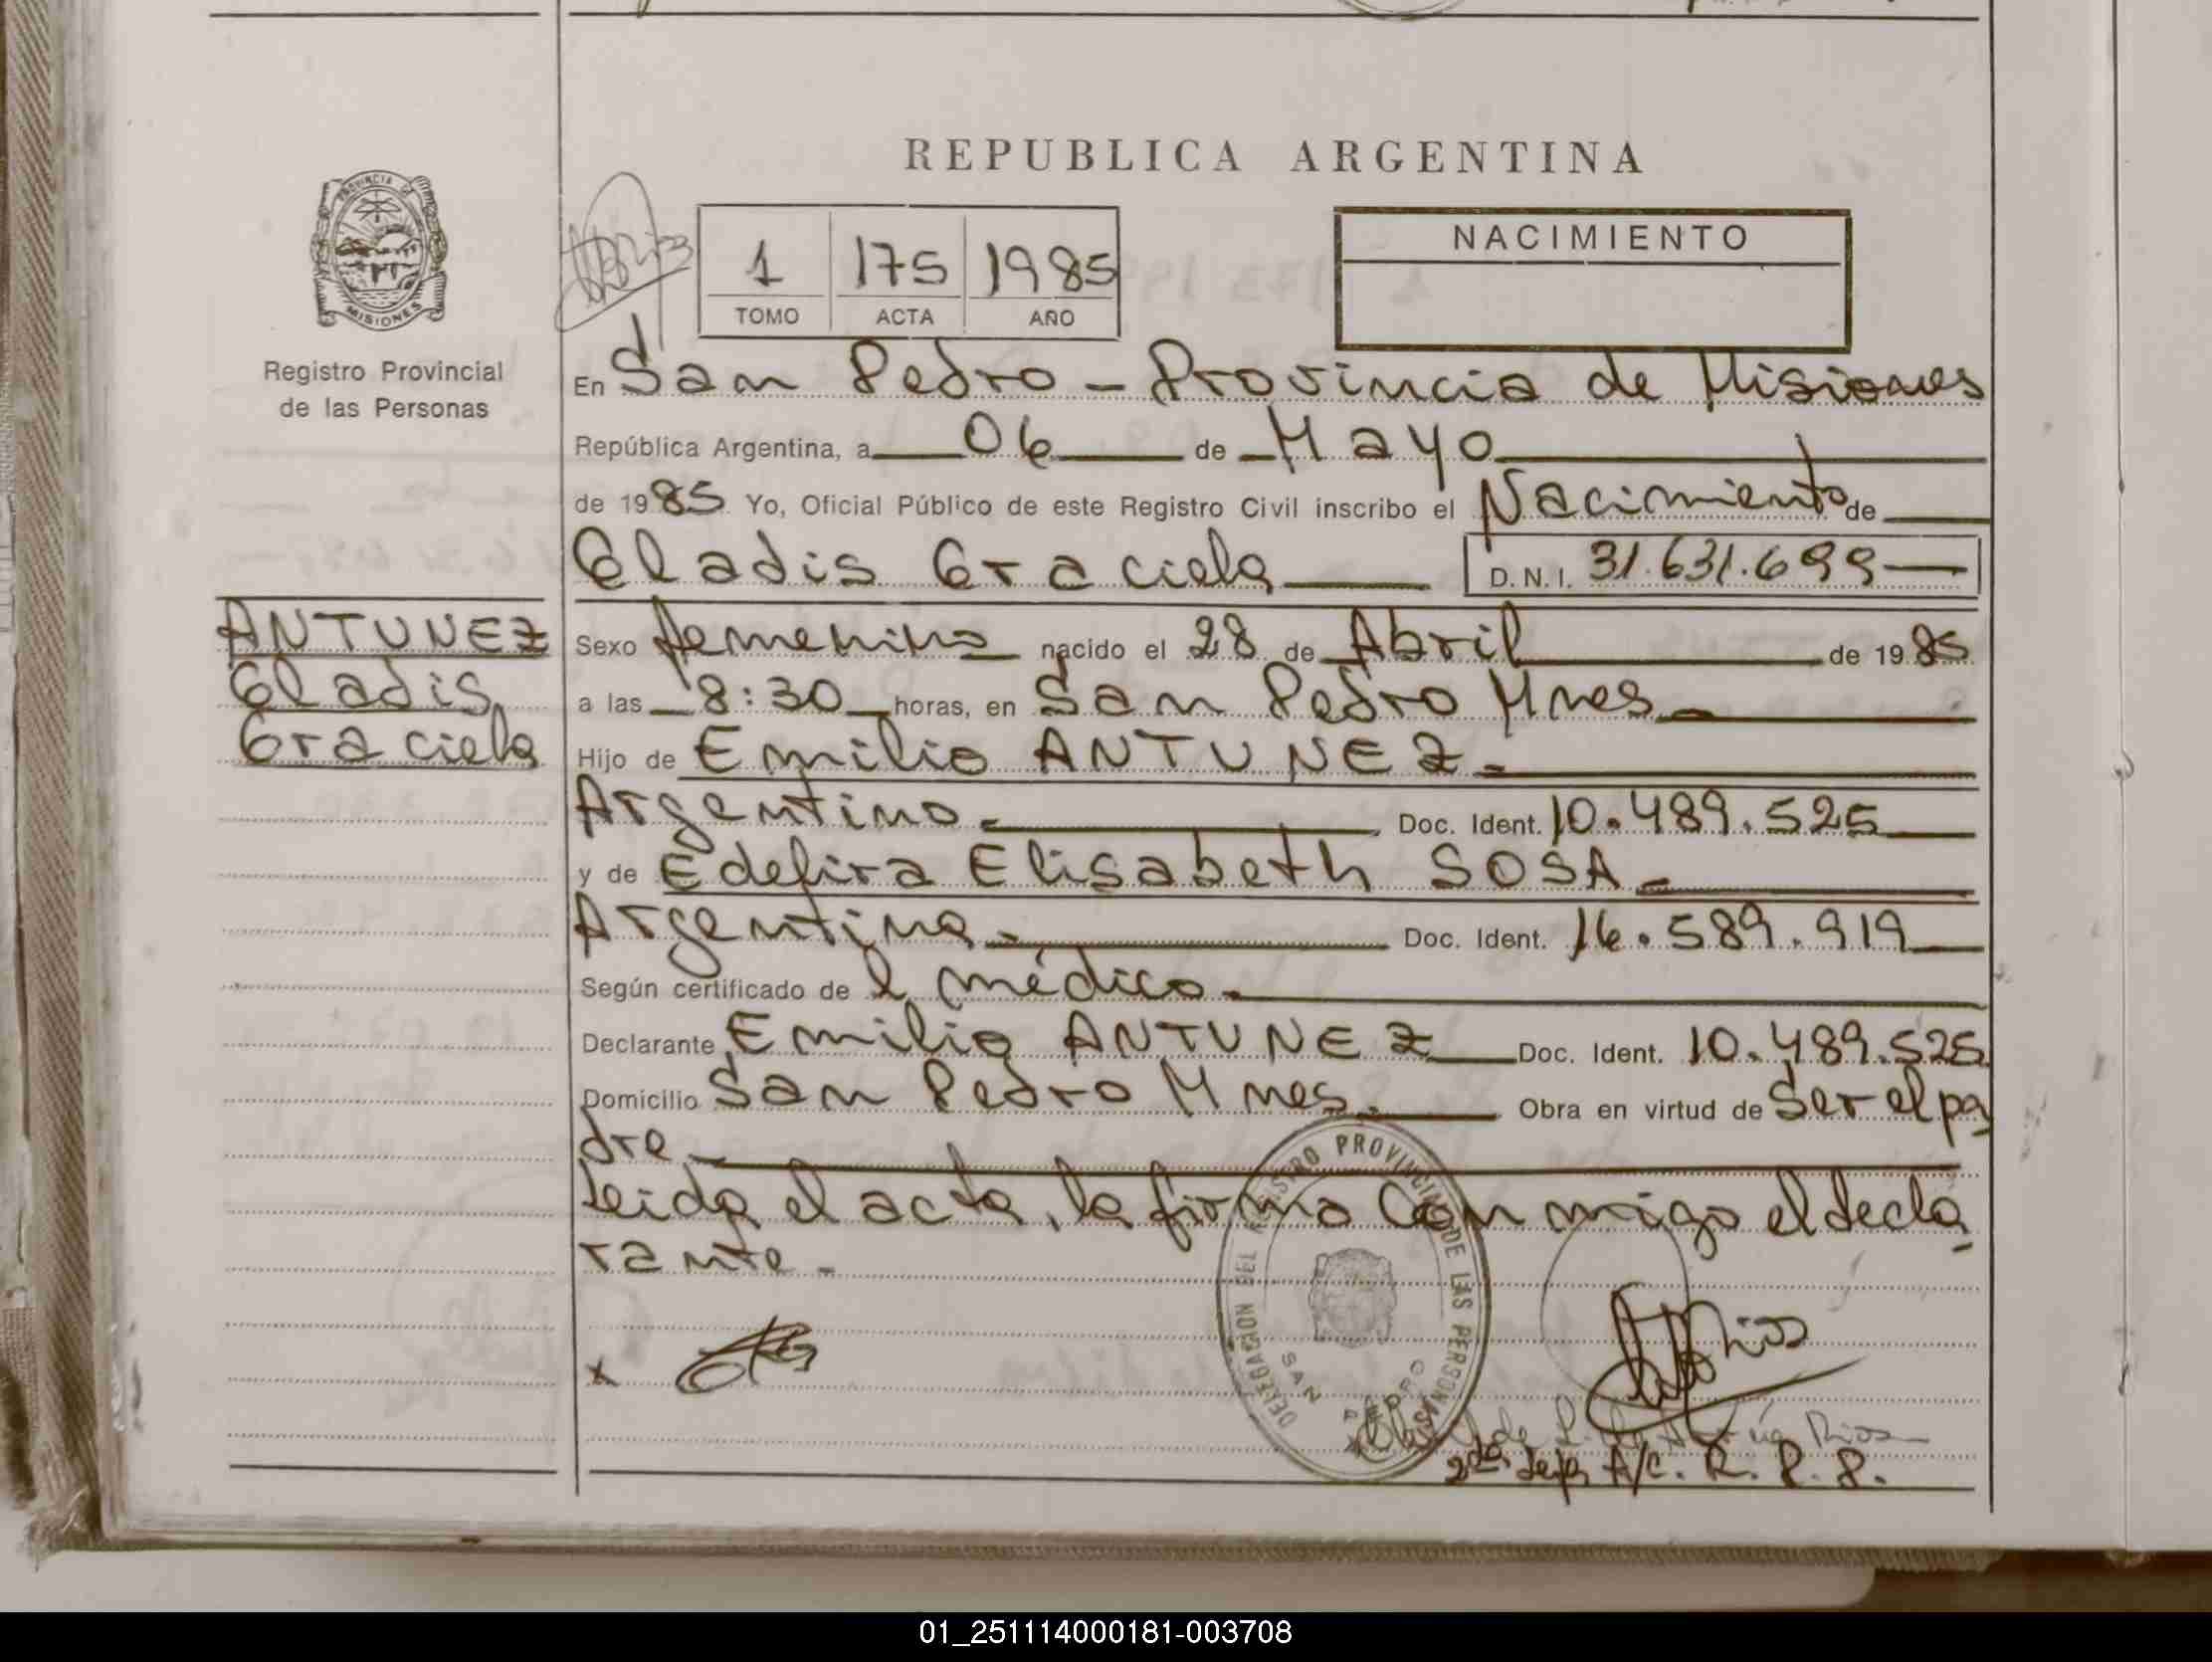 REPUBLICA ARGENTINA
PROVINCIA DE
MISIONES
Registro Provincial
de las Personas
1 175 1985
TOMO ACTA AÑO
NACIMIENTO
En San Pedro - Provincia de Misiones
República Argentina, a 06 de Mayo
de 1985 Yo, Oficial Público de este Registro Civil inscribo el Nacimiento de
Gladis Graciela D.N.I. 31.631.699
ANTUNEZ
Gladis
Graciela
Sexo femenino nacido el 28 de Abril de 1985
a las 8:30 horas, en San Pedro Mnes.
Hijo de Emilio ANTUNEZ.
Argentino. Doc. Ident. 10.489.525
y de Edelira Elisabeth SOSA.
Argentina. Doc. Ident. 16.589.919
Según certificado de l médico.
Declarante Emilio ANTUNEZ Doc. Ident. 10.489.525
Domicilio San Pedro Mnes. Obra en virtud de Ser el pa
dre
Leida el acta, la firma Con migo el decla
rante.
DELEGACION DEL REGISTRO PROVINCIAL DE LAS PERSONAS
SAN PEDRO
x
Rios
2da Jefa A/C. R. P. P.
01_251114000181-003708